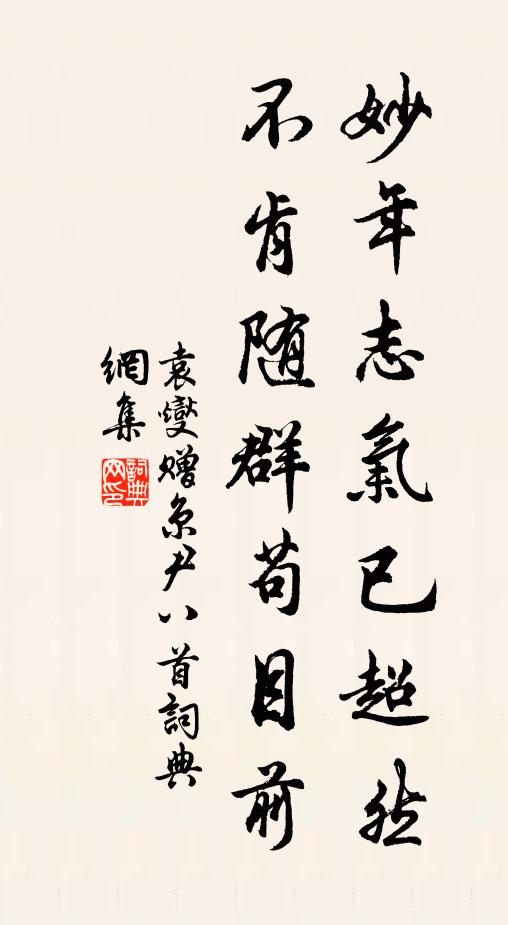 妙年志氣已超然
不肯随群苟目前
袁燮贈京尹八首詞典
網集
詞典
网印